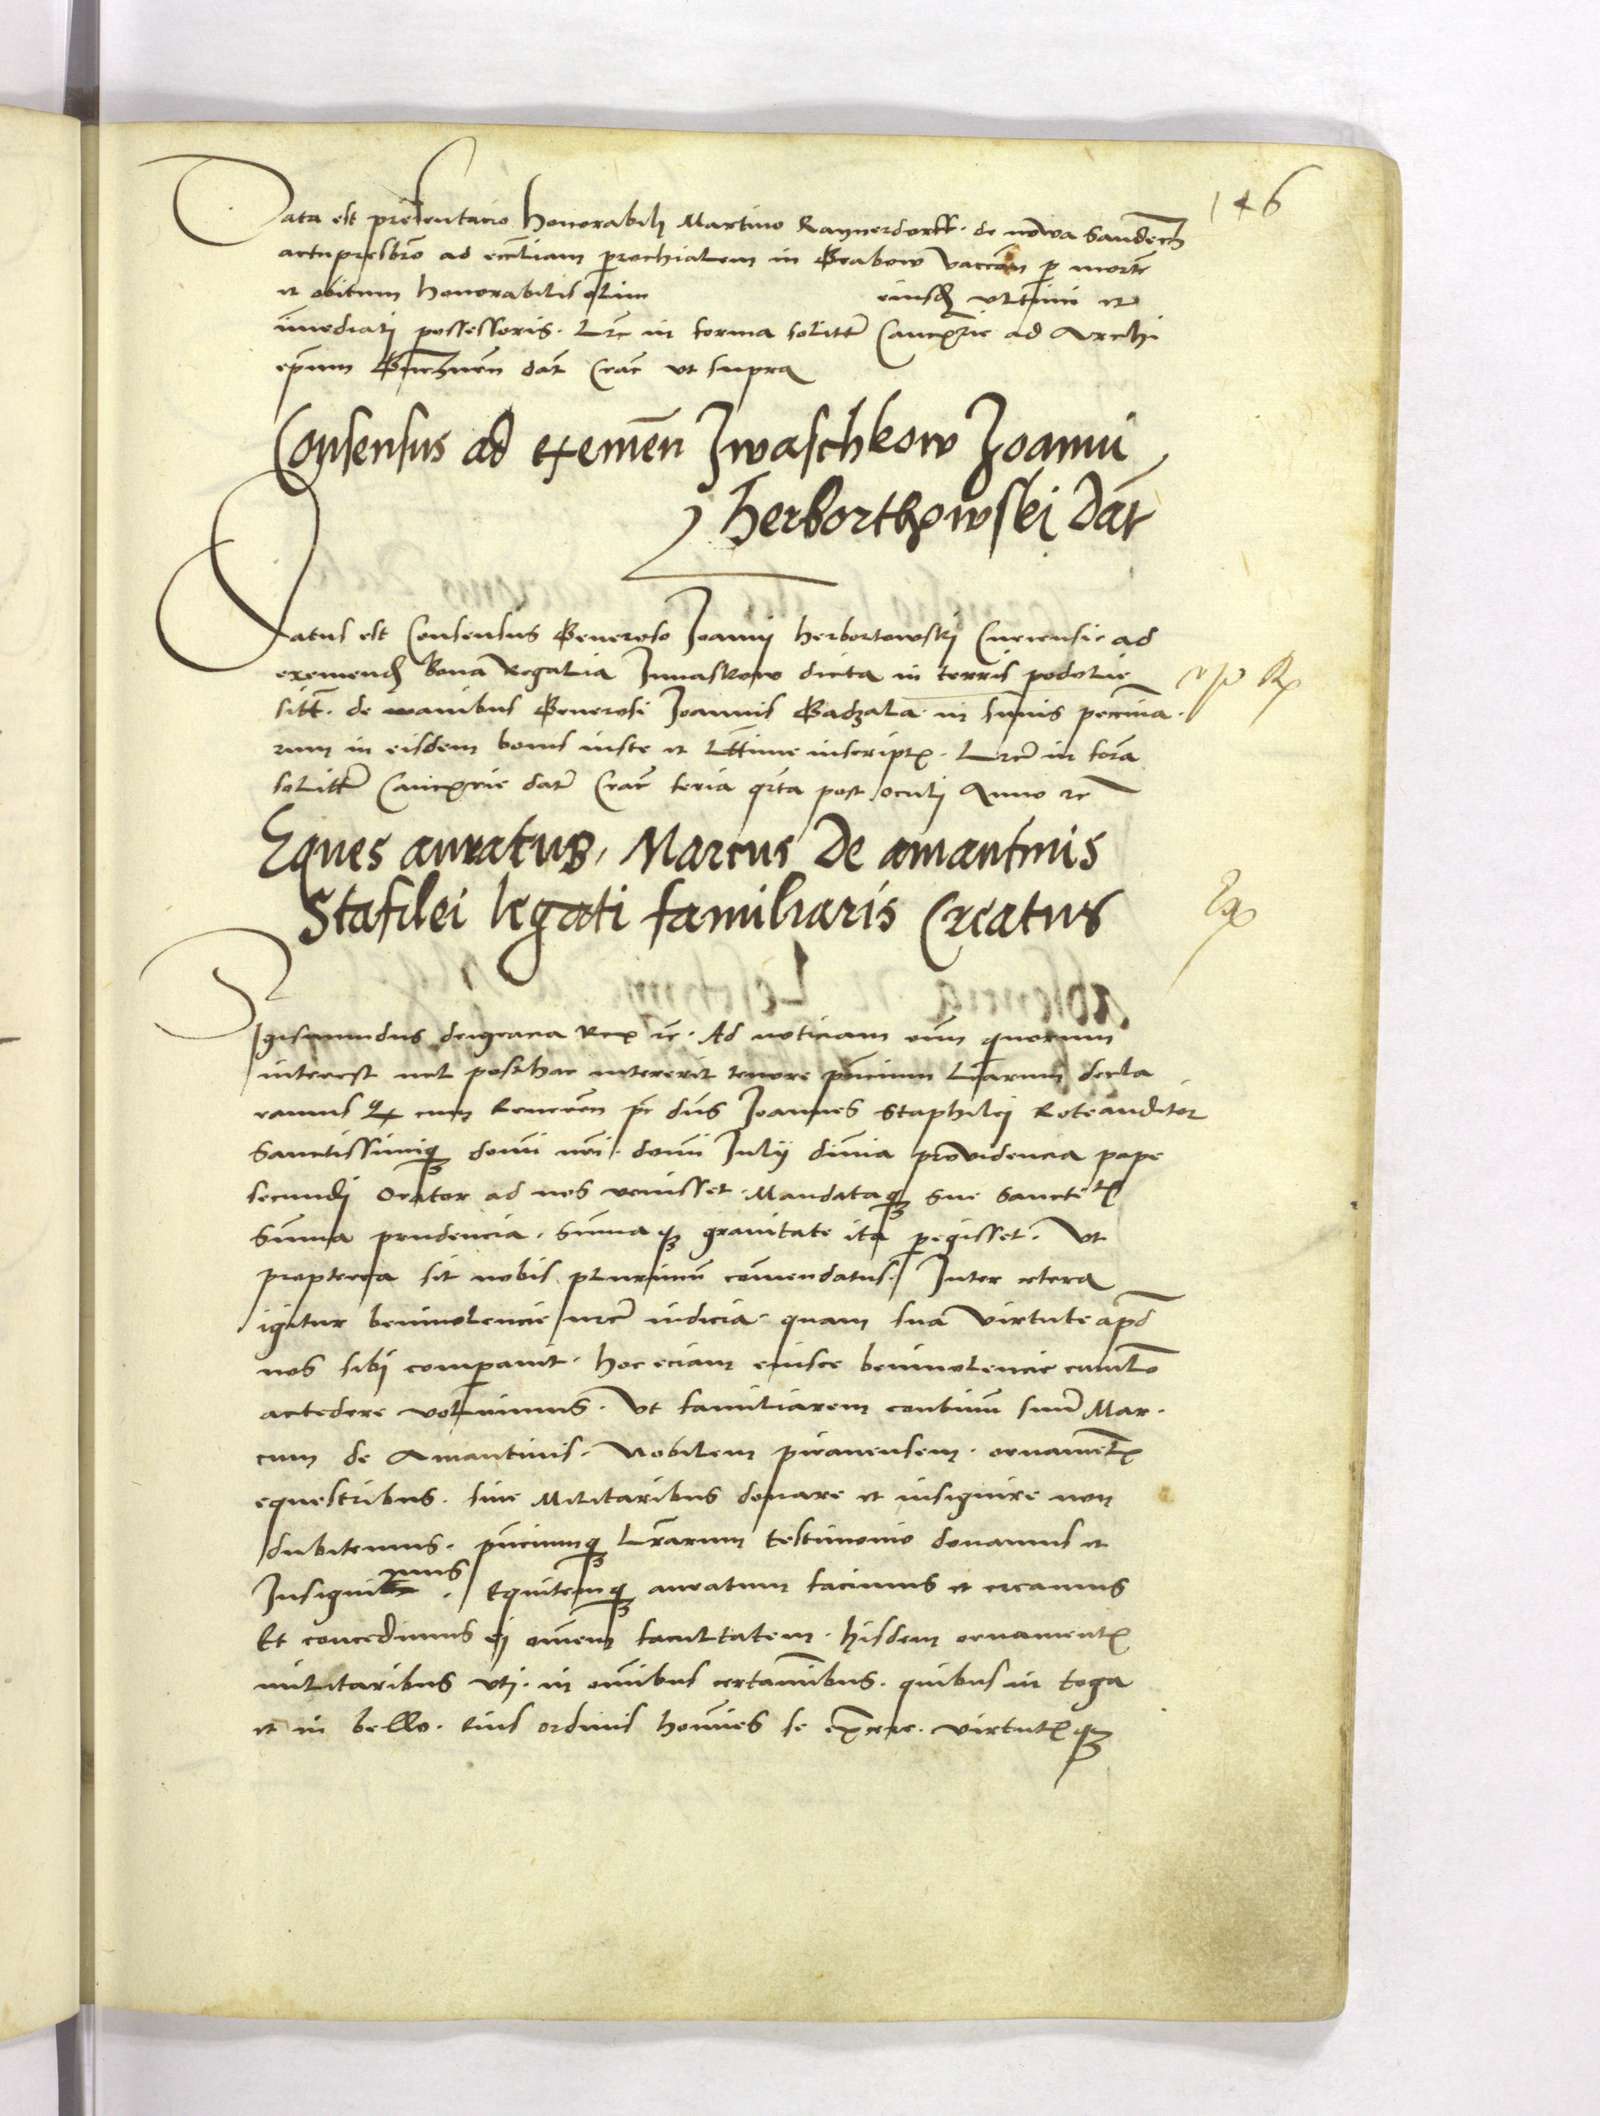 146
Data est presentacio honorabili Martino Raynerdorff. de nowa Sandecz
actu presbro ad eccliam prochialem in Grabow vaccan p morte
et obitum honorabilis olim eiusd ultimi et
imediati possessoris. Lre in forma solitt Cancrie ad Archi
epum Gneznen dat Crac ut supra
Consensus ad exemen Jwaschkow Joanni
Herborthowski dat
Datus est Consensus Generoso Joanni herbortowskj Curiensi ad
exemend bona Regalia Jwaskow dicta in terris podolie
sitt. de manibus Generosi Joannis Gadzala in sumis peccunia
rum in eisdem bonis iuste et lttime inscriptis. Lre in fora
solitt Cancrie dat Crac feria qrta post oculi Anno rc
Eques auratus, Marcus de amantinis
Stafilei legati familiaris Creatus
Eq
Sigismundus dei gracia Rex rc. Ad noticiam oim quorum
interest uel posthac intererit tenore pncium lrarum decla
ramus q cum Reueren pr dns Joannes Staphilej Rote auditor
Sanctissimiq domi nri. domi Julij diuina prouidencia pape
secundj Orator ad nos venisset. Mandataq sue Sanctetis
Summa prudencia. Sumaq grauitate ita pegisset. Ut
propterea sit nobis plurimum comendatus. Inter cetera
igitur beniuolencie nre indicia. quam sua virtute apd
nos sibj comparauit. hoc eciam eiusce beniuolencie cumulo
accedere voluimus. Ut familiarem continuu suum Mar.
cum de Amantinis. Nobilem piranensem. ornametis
equestribus. siue Militaribus donare et insignire non
dubitemus. pnciumq lrarum testimonio donamus et
Insignimus. Equitemq auratum facimus et creamus
Et concedimus ej omem facultatem. hisdem ornamentis
militaribus utj. in omibus certaminibus. quibus in toga
et in bello. eius ordinis homines se exercere. virtutisq